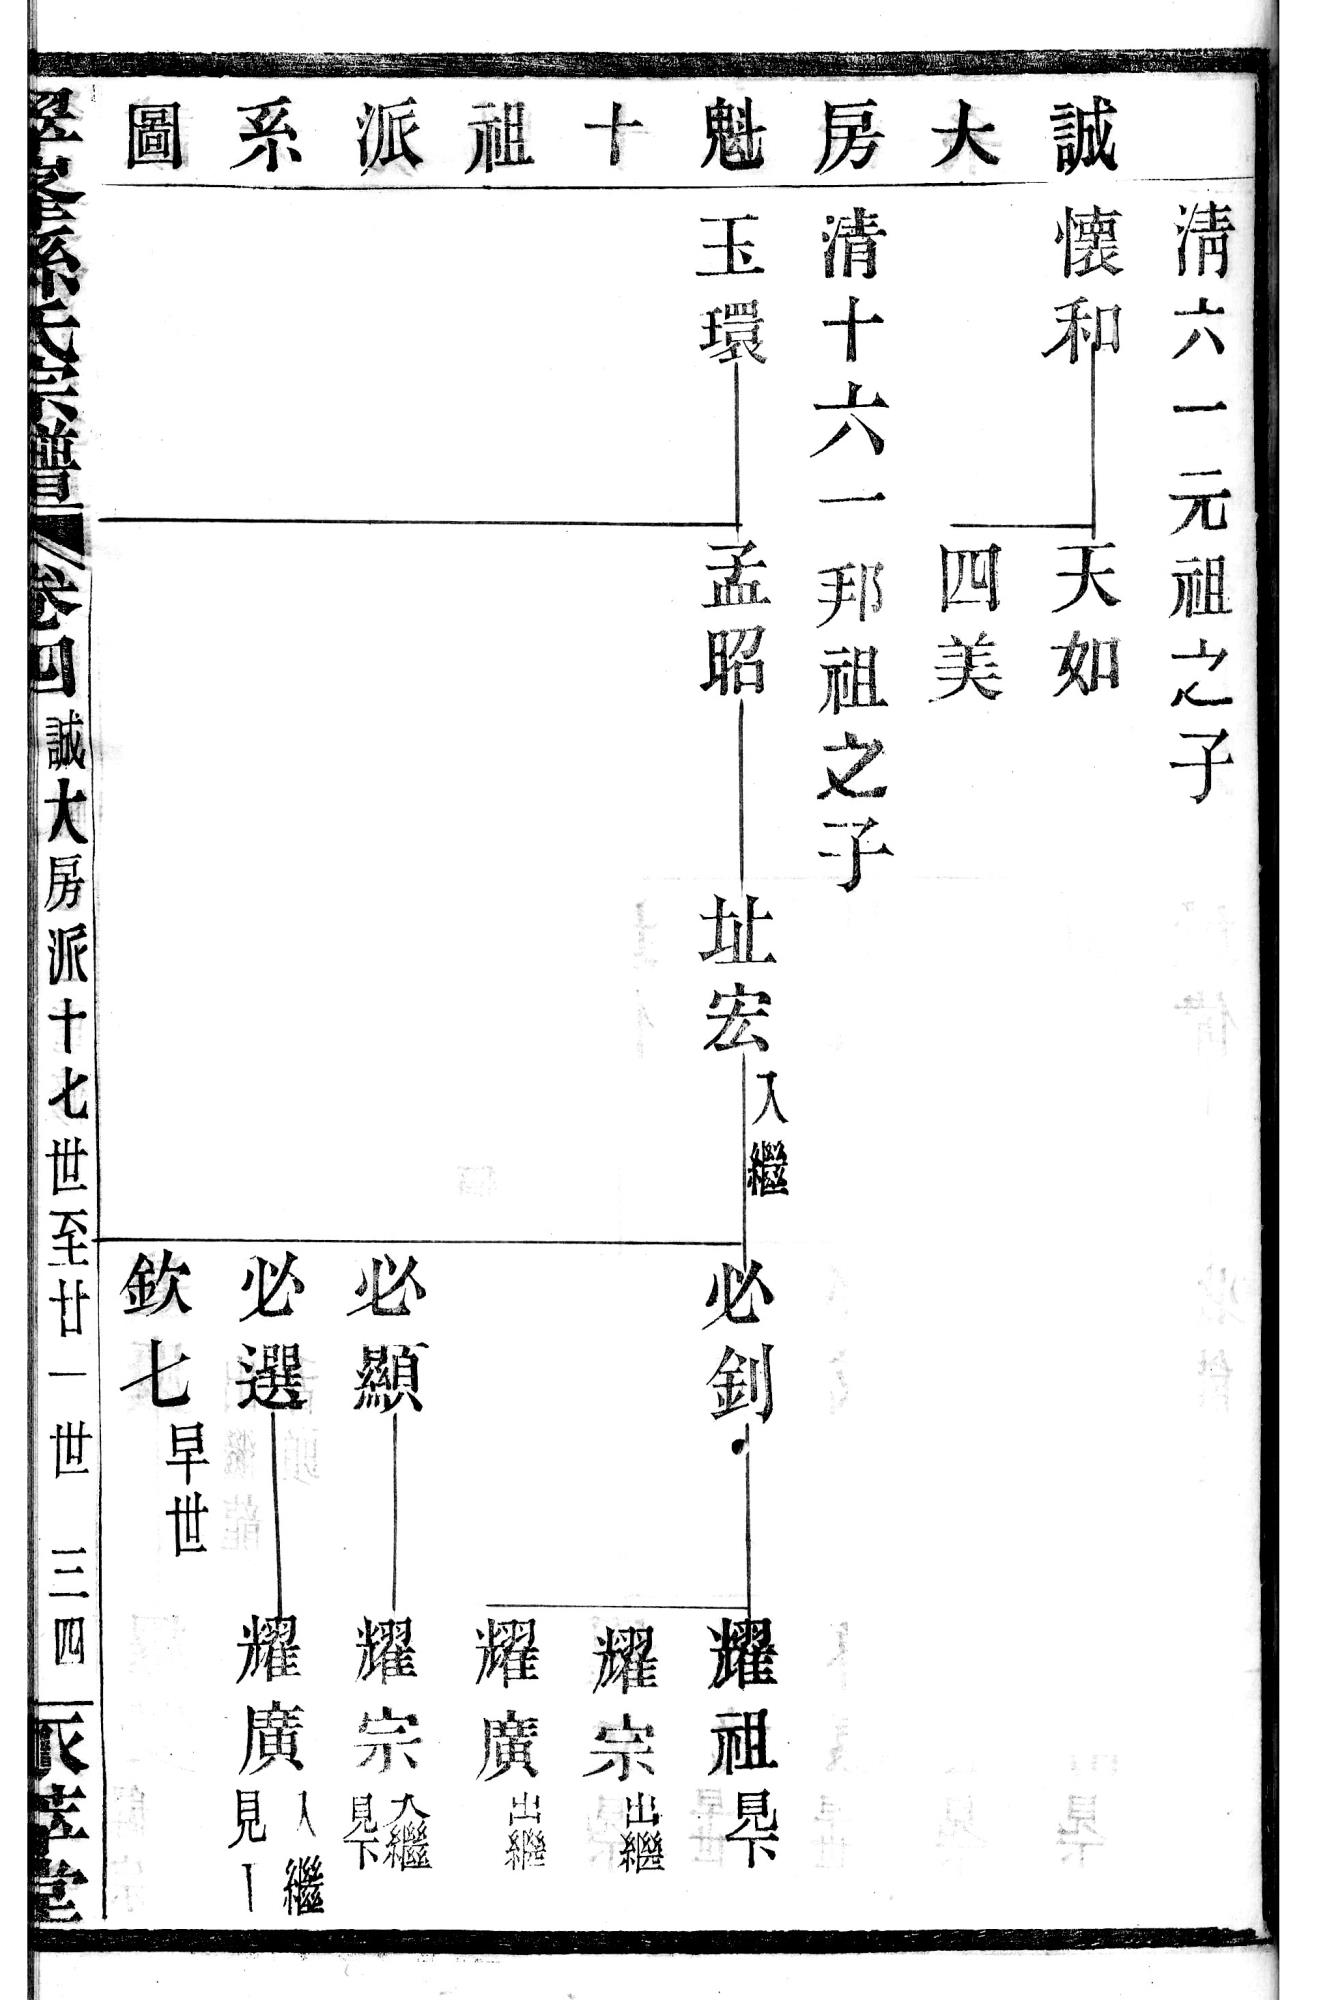 誠大房魁十祖派系圖
清六一元祖之子
懷和
天如
四美
清十六一邦祖之子
玉環
孟昭
址宏
入繼
必釗
耀祖
見下
耀宗
出繼
耀廣
出繼
必顯
耀宗
入繼
見下
必選
耀廣
入繼
見
欽七
早世
孫氏宗譜
卷四
誠大房派十七世至廿一世
三四
萃堂